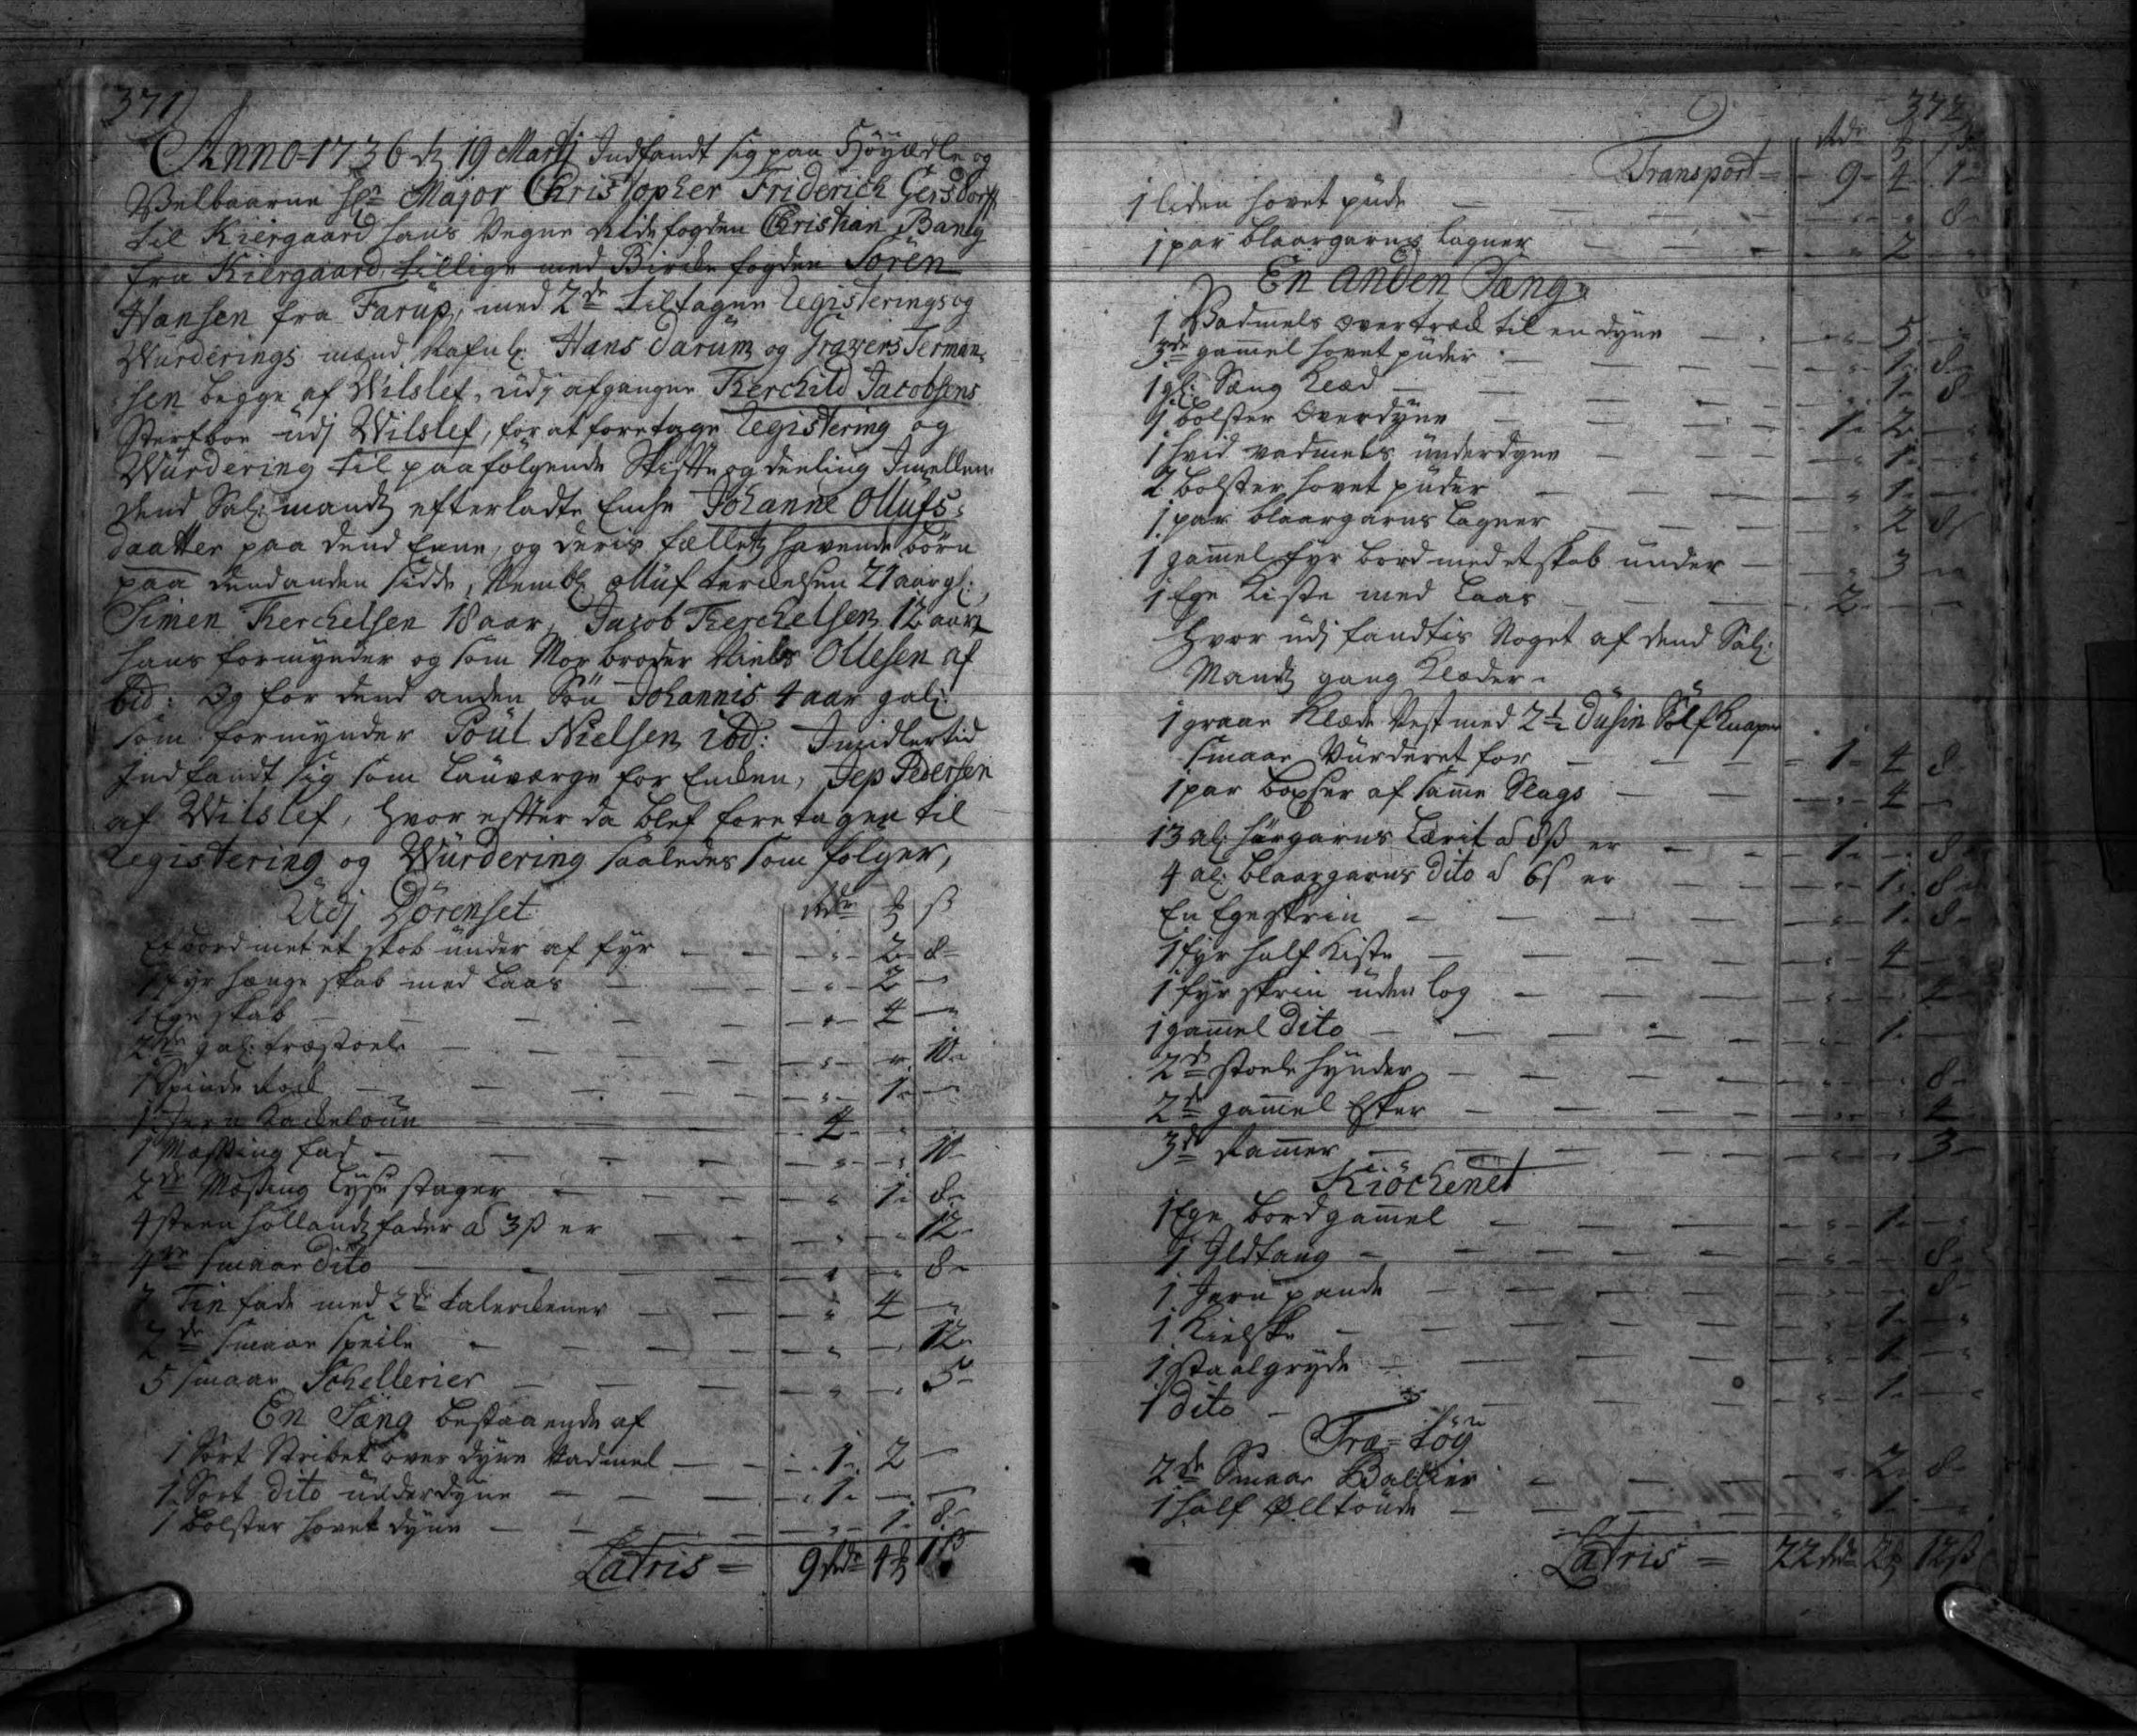 371
Anno 1736 d. 19 Martj Indfandt sig paa Höyædle og
Welbaarne Hr. Major Christopher Friderich Gersdorff
til Kiergaard hans Vegne Ridefogden Christian Bang
fra Kiergaard, tillige med Bircke fogden Sören
Hansen fra Farup, med 2de tiltagne Registerings og
Wurderings mænd Nafnl. Hans Darum og Grawers Terman-
sen begge af Wilslef, udj afgangne Kerchild Jacobsens
Sterfboe udj Wilslef, for at foretage Registering og
Wurdering til paafølgende Skifte og deeling Imellem
dend Sal: mands efterladte Enche Johanne Ollufs-
daatter paa dend Eene, og deris fælleds havende börn
paa dend anden sidde, Nembl. Olluf Kerckelsen 21 aar gl:,
Simen Kerchelsen 18 aar, Jacob Kerchelsen 12 aar,
hans formynder og som Morbroder Niels Ollesen af
bid: Og for dend anden Sön Johannis 4 aar gal:
som formynder Poul Nielsen ibd: Imidlertid
Indfandt sig som Lauværge for Encken, Jep Pedersen
af Wilslef, hvor efter da blef foretagen til
Registering og Wurdering saaledes som folger,
Udj Dörenset Rdr ꝸ ß
Et bord met et skab under af fyr - 2 - 8
1 fyr hænge skab med Laas - 2 -
1 Ege skab - 4 -
2de gal: træstoele - - 10
1 Spinde Rock - 1 -
1 Jern Kackeloun 4 - -
1 Messing fad - - 10
2de Messing Lyse stager - 1 - 8
4 steen hollands fader a 3 ß er - - 12
4re smaae dito - - 8
7 Tin fade med 2de talerckener - 4 -
2de smaae speile - - 12
5 smaae Schellerier - - 5
En Sæng bestaaende af
1 Sort Stribet over dyne Vadmel 1 - 2 -
1 Sort dito underdyne 1 - -
1 bolster hovet dyne - 1 - 8
Latris = 9 Rdr 4 ꝸ 1 ß
372
Rdr ꝸ ß
Transport 9 - 4 - 1
1 liden hovet pude - - 8
1 par blaargarns Lagner - 2 -
En anden Sæng
1 Vadmels overtræk til en dyne - 5 -
3de gammel hovet puder - 1 - 8
1 gl: Sæng Klæd - 1 - 8
1 bolster Overdyne 1 - 2 -
1 hvid vadmels underdyne - 1 -
2 bolster hovet puder - 1 -
1 par blaargarns Lagner - 2 - 8
1 gammel fyr bord med et skab under - 3 -
1 Ege Kiste med Laas 2 - -
Hvor udj fandtis Noget af dend Sal:
Mands gang Klæder
1 graae Klæde Vest med 2½ Dusin Sölf Knaper
smaae Vurderet for 1 - 4 - 8
1 par boxser af samme Slags - 4 -
13 al: hörgarns Lærit a 8 ß er 1 - - 8
4 al: blaargarns dito a 6 ß er - 1 - 8
En Egeskrin - 1 - 8
1 fyr half Kiste - 4 -
1 fyr skrin uden log - - 4
1 gammel dito - 1 -
2de stoele hynder - - 8
2de gammel Esker - - 4
3de Rammer - - 3
Kiöchenet
1 Ege bord gammel - 1 -
1 Ildtang - - 8
1 Jern pande - - 8
1 Kielske - 1 -
1 staalgryde - 1 -
1 dito - 1 -
Træ-töy
2de Smaae Ballier - 2 - 8
1 half Ølltönde - 1 -
Latris = 22 Rdr 2 ꝸ 12 ß